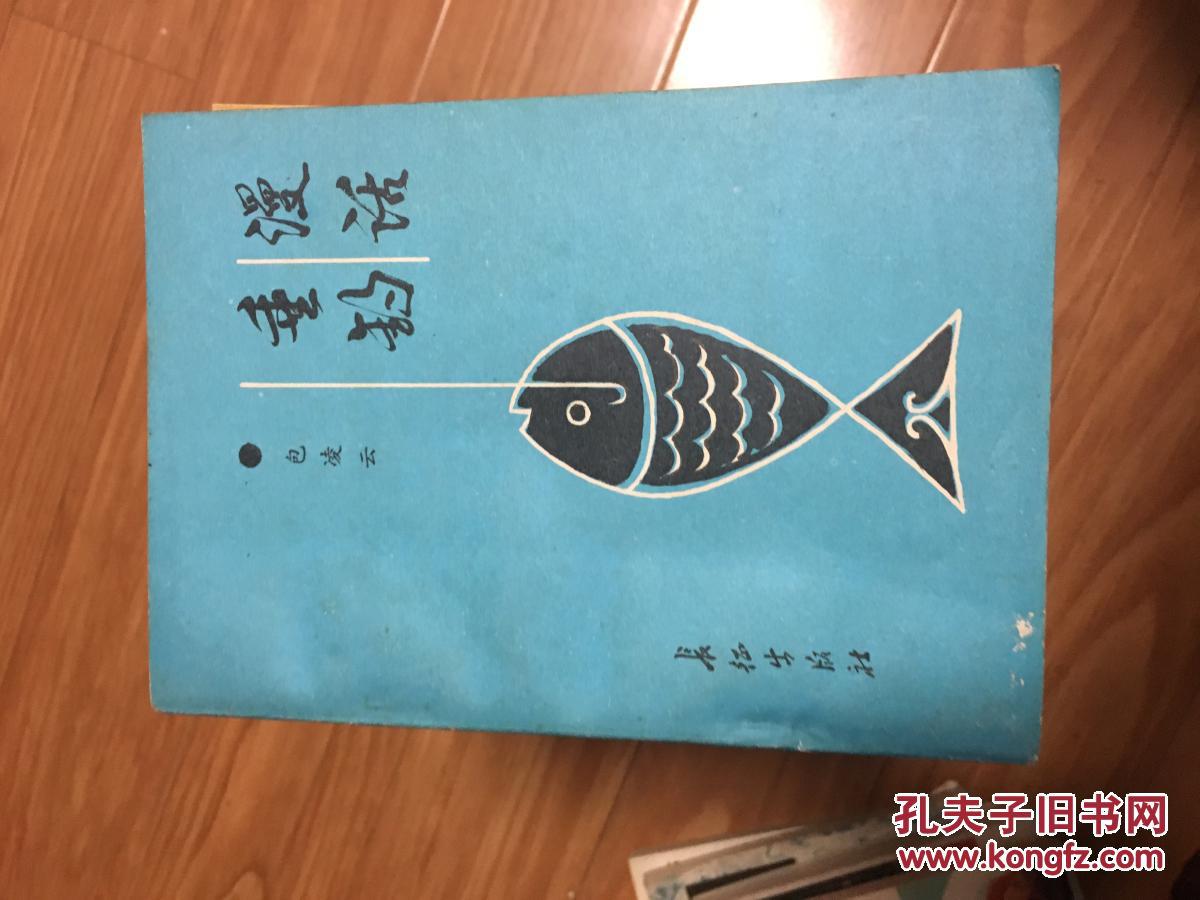 漫话
垂钓
包凌云
长征出版社
孔夫子旧书网
www.kongfz.com